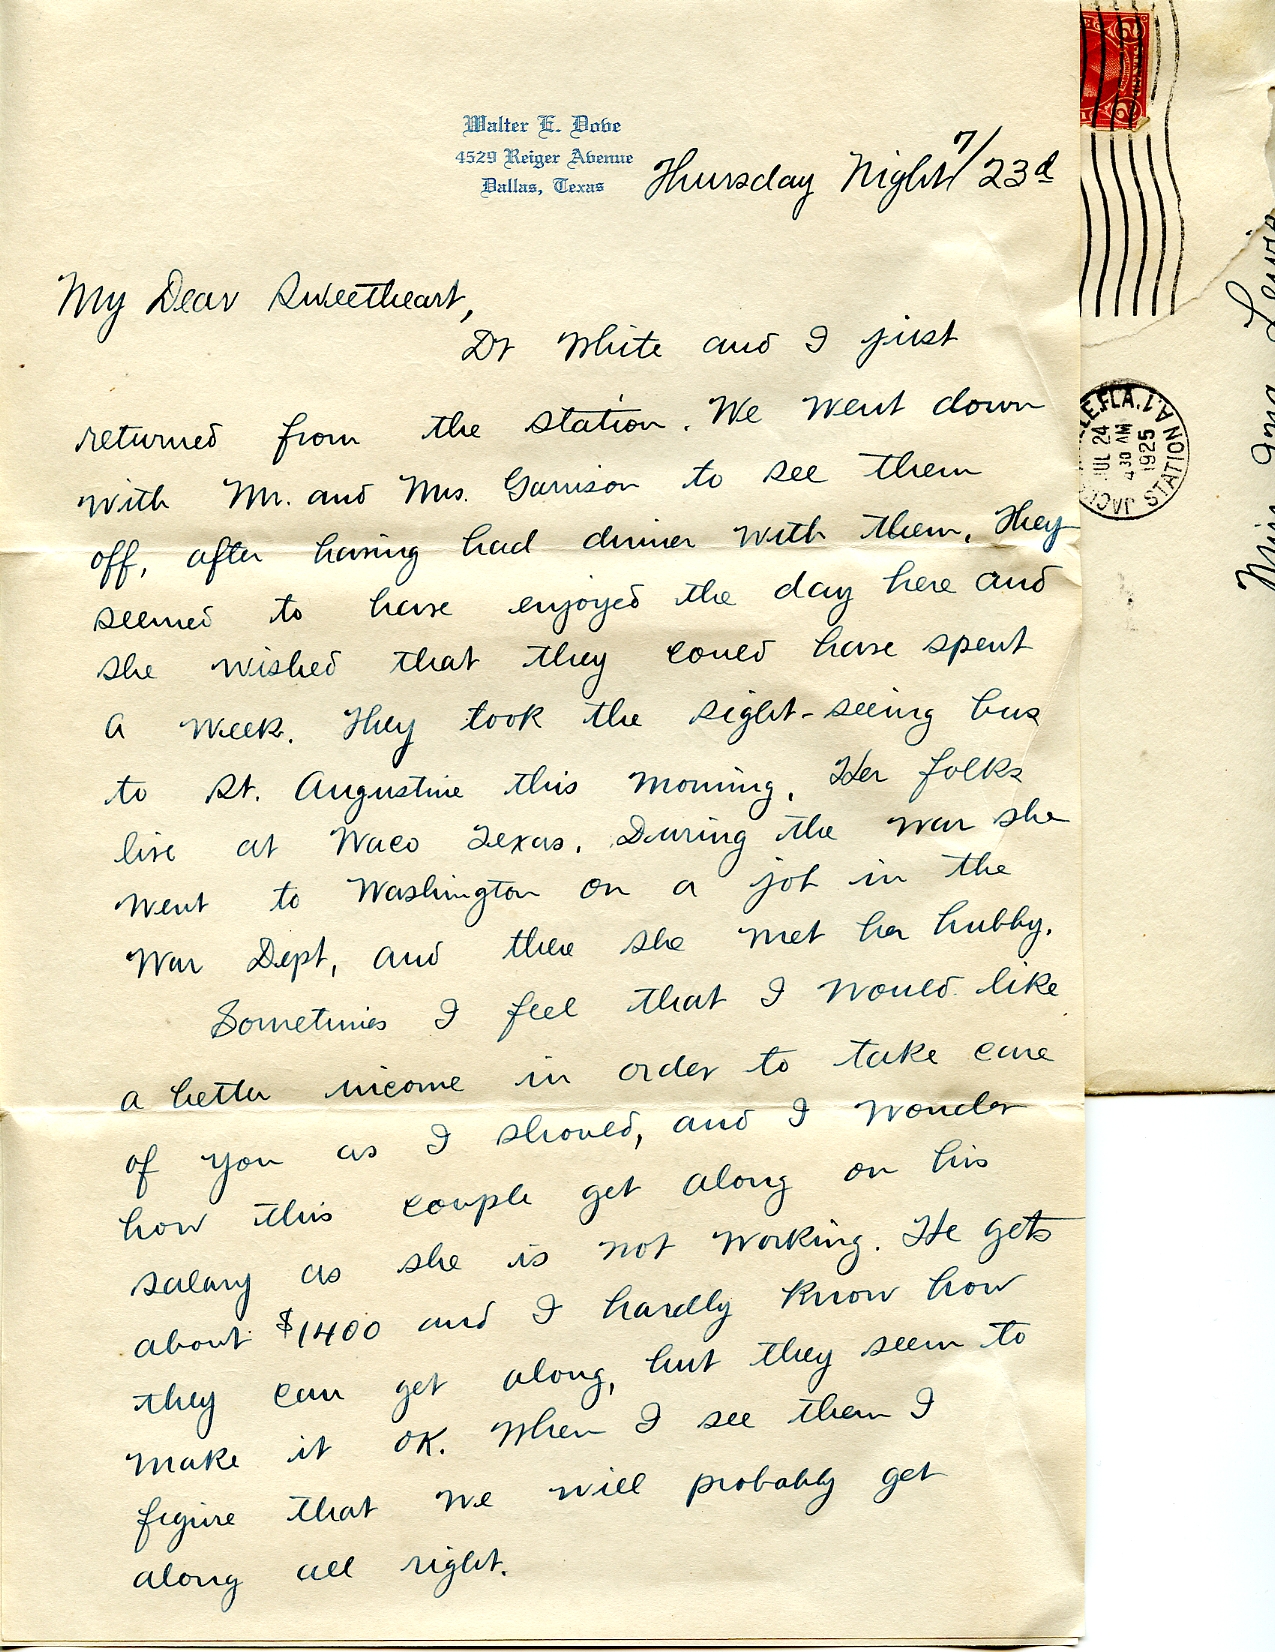 Walter E. Dove
4529 Reiger Avenue
Dallas, Texas
Thursday Night 7/23d
My Dear Sweetheart,
Dr White and I just
returned from the station. We went down
with Mr. and Mrs. Garrison to see them
off, after having had dinner with them. They
seemed to have enjoyed the day here and
she wished that they could have spent
a week. They took the sight-seeing bus
to St. Augustine this morning. Her folks
live at Waco Texas. During the war she
went to Washington on a job in the
War Dept, and there she met her hubby.
Sometimes I feel that I would like
a better income in order to take care
of you as I should, and I wonder
how this couple get along on his
salary as she is not working. He gets
about $1400 and I hardly know how
they can get along, but they seem to
make it OK. When I see them I
figure that we will probably get
along all right.
2
FLA.
STATION A
JUL 24
4 30 AM
1925
Miss
Lewis